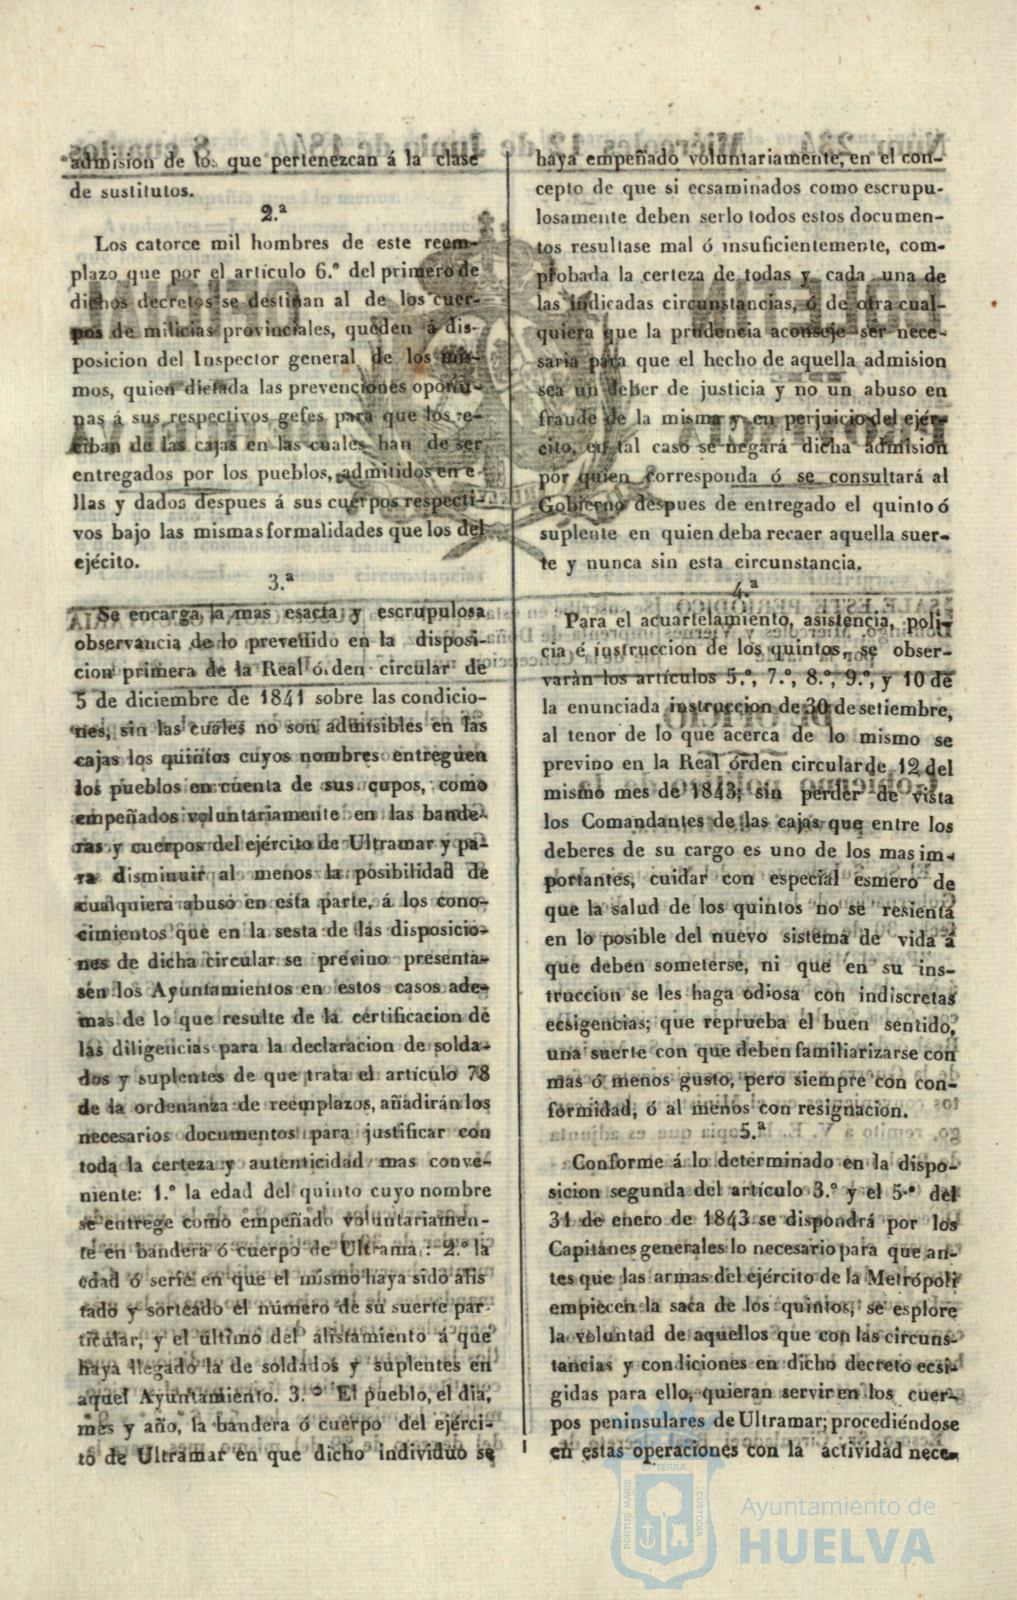 admision de los que pertenezcan á la clase
de sustitutos.
2.ª
Los catorce mil hombres de este reem-
plazo que por el artículo 6.º del primero de
dichos decretos se destinan al de los cuer-
pos de milicias provinciales, queden á dis-
posicion del Inspector general de los mis-
mos, quien dictada las prevenciones oportu-
nas á sus respectivos gefes para que los re-
ciban de las cajas en las cuales han de ser
entregados por los pueblos, admitidos en e-
llas y dados despues á sus cuerpos respecti-
vos bajo las mismas formalidades que los del
ejécito.
3.ª
Se encarga la mas esacta y escrupulosa
observancia de lo prevenido en la disposi-
cion primera de la Real órden circular de
5 de diciembre de 1841 sobre las condicio-
nes, sin las cuales no son admisibles en las
cajas los quintos cuyos nombres entreguen
los pueblos en cuenta de sus cupos, como
empeñados voluntariamente en las bande-
ras y cuerpos del ejército de Ultramar y pa-
ra disminuir al menos la posibilidad de
cualquiera abuso en esta parte, á los cono-
cimientos que en la sesta de las disposicio-
nes de dicha circular se previno presenta-
sen los Ayuntamientos en estos casos ade-
mas de lo que resulte de la certificacion de
las diligencias para la declaracion de solda-
dos y suplentes de que trata el artículo 78
de la ordenanza de reemplazos, añadirán los
necesarios documentos para justificar con
toda la certeza y autenticidad mas conve-
niente: 1.º la edad del quinto cuyo nombre
se entrege como empeñado voluntariamen-
te en bandera ó cuerpo de Ultrama : 2.º la
edad ó serie en que el mismo haya sido alis
tado y sorteado el número de su suerte par-
ticular, y el último del alistamiento á que
haya llegado la de soldados y suplentes en
aquel Ayuntamiento. 3.º El pueblo, el dia,
mes y año, la bandera ó cuerpo del ejérci-
to de Ultramar en que dicho individuo se
haya empeñado voluntariamente, en el con-
cepto de que si ecsaminados como escrupu-
losamente deben serlo todos estos documen-
tos resultase mal ó insuficientemente, com-
probada la certeza de todas y cada una de
las indicadas circunstancias, ó de otra cual-
quiera que la prudencia aconseje ser nece-
saria para que el hecho de aquella admision
sea un deber de justicia y no un abuso en
fraude de la misma y en perjuicio del ejér-
cito, en tal caso se negará dicha admision
por quien corresponda ó se consultará al
Gobierno despues de entregado el quinto ó
suplente en quien deba recaer aquella suer-
te y nunca sin esta circunstancia.
4.ª
Para el acuartelamiento, asistencia, poli-
cia é instruccion de los quintos, se obser-
varán los artículos 5.º, 7.º, 8.º, 9.º, y 10 de
la enunciada instruccion de 30 de setiembre,
al tenor de lo que acerca de lo mismo se
previno en la Real órden circular de 12 del
mismo mes de 1843; sin perder de vista
los Comandantes de las cajas que entre los
deberes de su cargo es uno de los mas im-
portantes, cuidar con especial esmero de
que la salud de los quintos no se resienta
en lo posible del nuevo sistema de vida á
que deben someterse, ni que en su ins-
truccion se les haga odiosa con indiscretas
ecsigencias; que reprueba el buen sentido,
una suerte con que deben familiarizarse con
mas ó menos gusto, pero siempre con con-
formidad, ó al menos con resignacion.
5.ª
Conforme á lo determinado en la dispo-
sicion segunda del artículo 3.º y el 5.º del
31 de enero de 1843 se dispondrá por los
Capitanes generales lo necesario para que an-
tes que las armas del ejército de la Metrópoli
empiecen la saca de los quintos, se esplore
la voluntad de aquellos que con las circuns-
tancias y condiciones en dicho decreto ecsi-
gidas para ello, quieran servir en los cuer-
pos peninsulares de Ultramar; procediéndose
en estas operaciones con la actividad nece-
PORTUS MARIS
ET TERRÆ
CUSTODIA
Ayuntamiento de
HUELVA